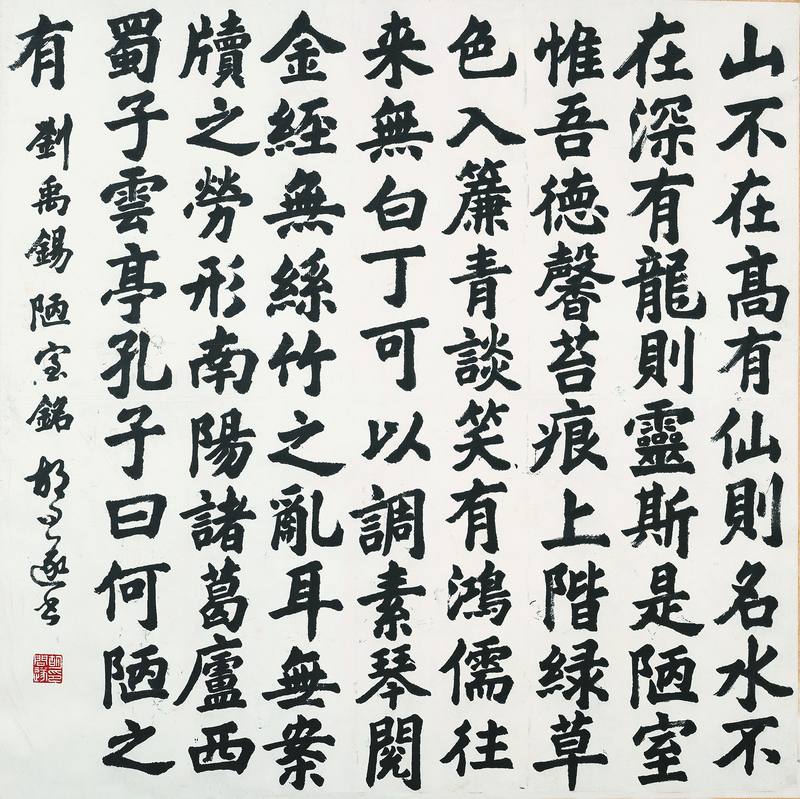 山不在髙有仙則名水不
在深有龍則靈斯是陋室
惟吾徳馨苔痕上階緑草
色入簾青談笑有鴻儒往
来無白丁可以調素琴閱
金經無絲竹之亂耳無案
牘之勞形南陽諸葛廬西
蜀子雲亭孔子曰何陋之
有 劉禹錫陋室銘 胡问遂书